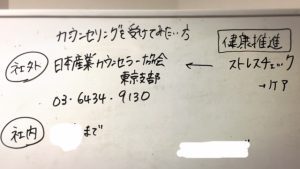 カウンセリングを受けてみたい方
健康推進
社外 日本産業カウンセラー協会 ← ストレスチェック
東京支部 →ケア
03-6434-9130
社内 まで